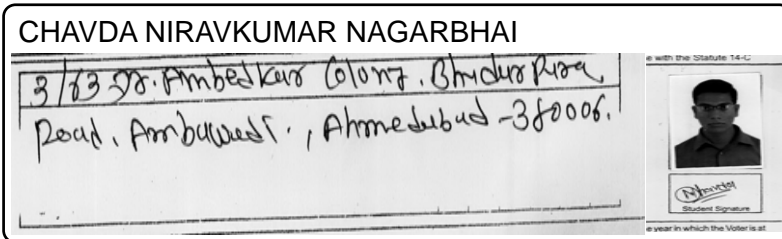 CHAVDA NIRAVKUMAR NAGARBHAI
3/63 Dr. Ambedkar Colony. Bhudurpura
Road. Ambuwadi., Ahmedubad -380006.
e with the Statute 14-C
Student Signature
e year in which the Voter is at